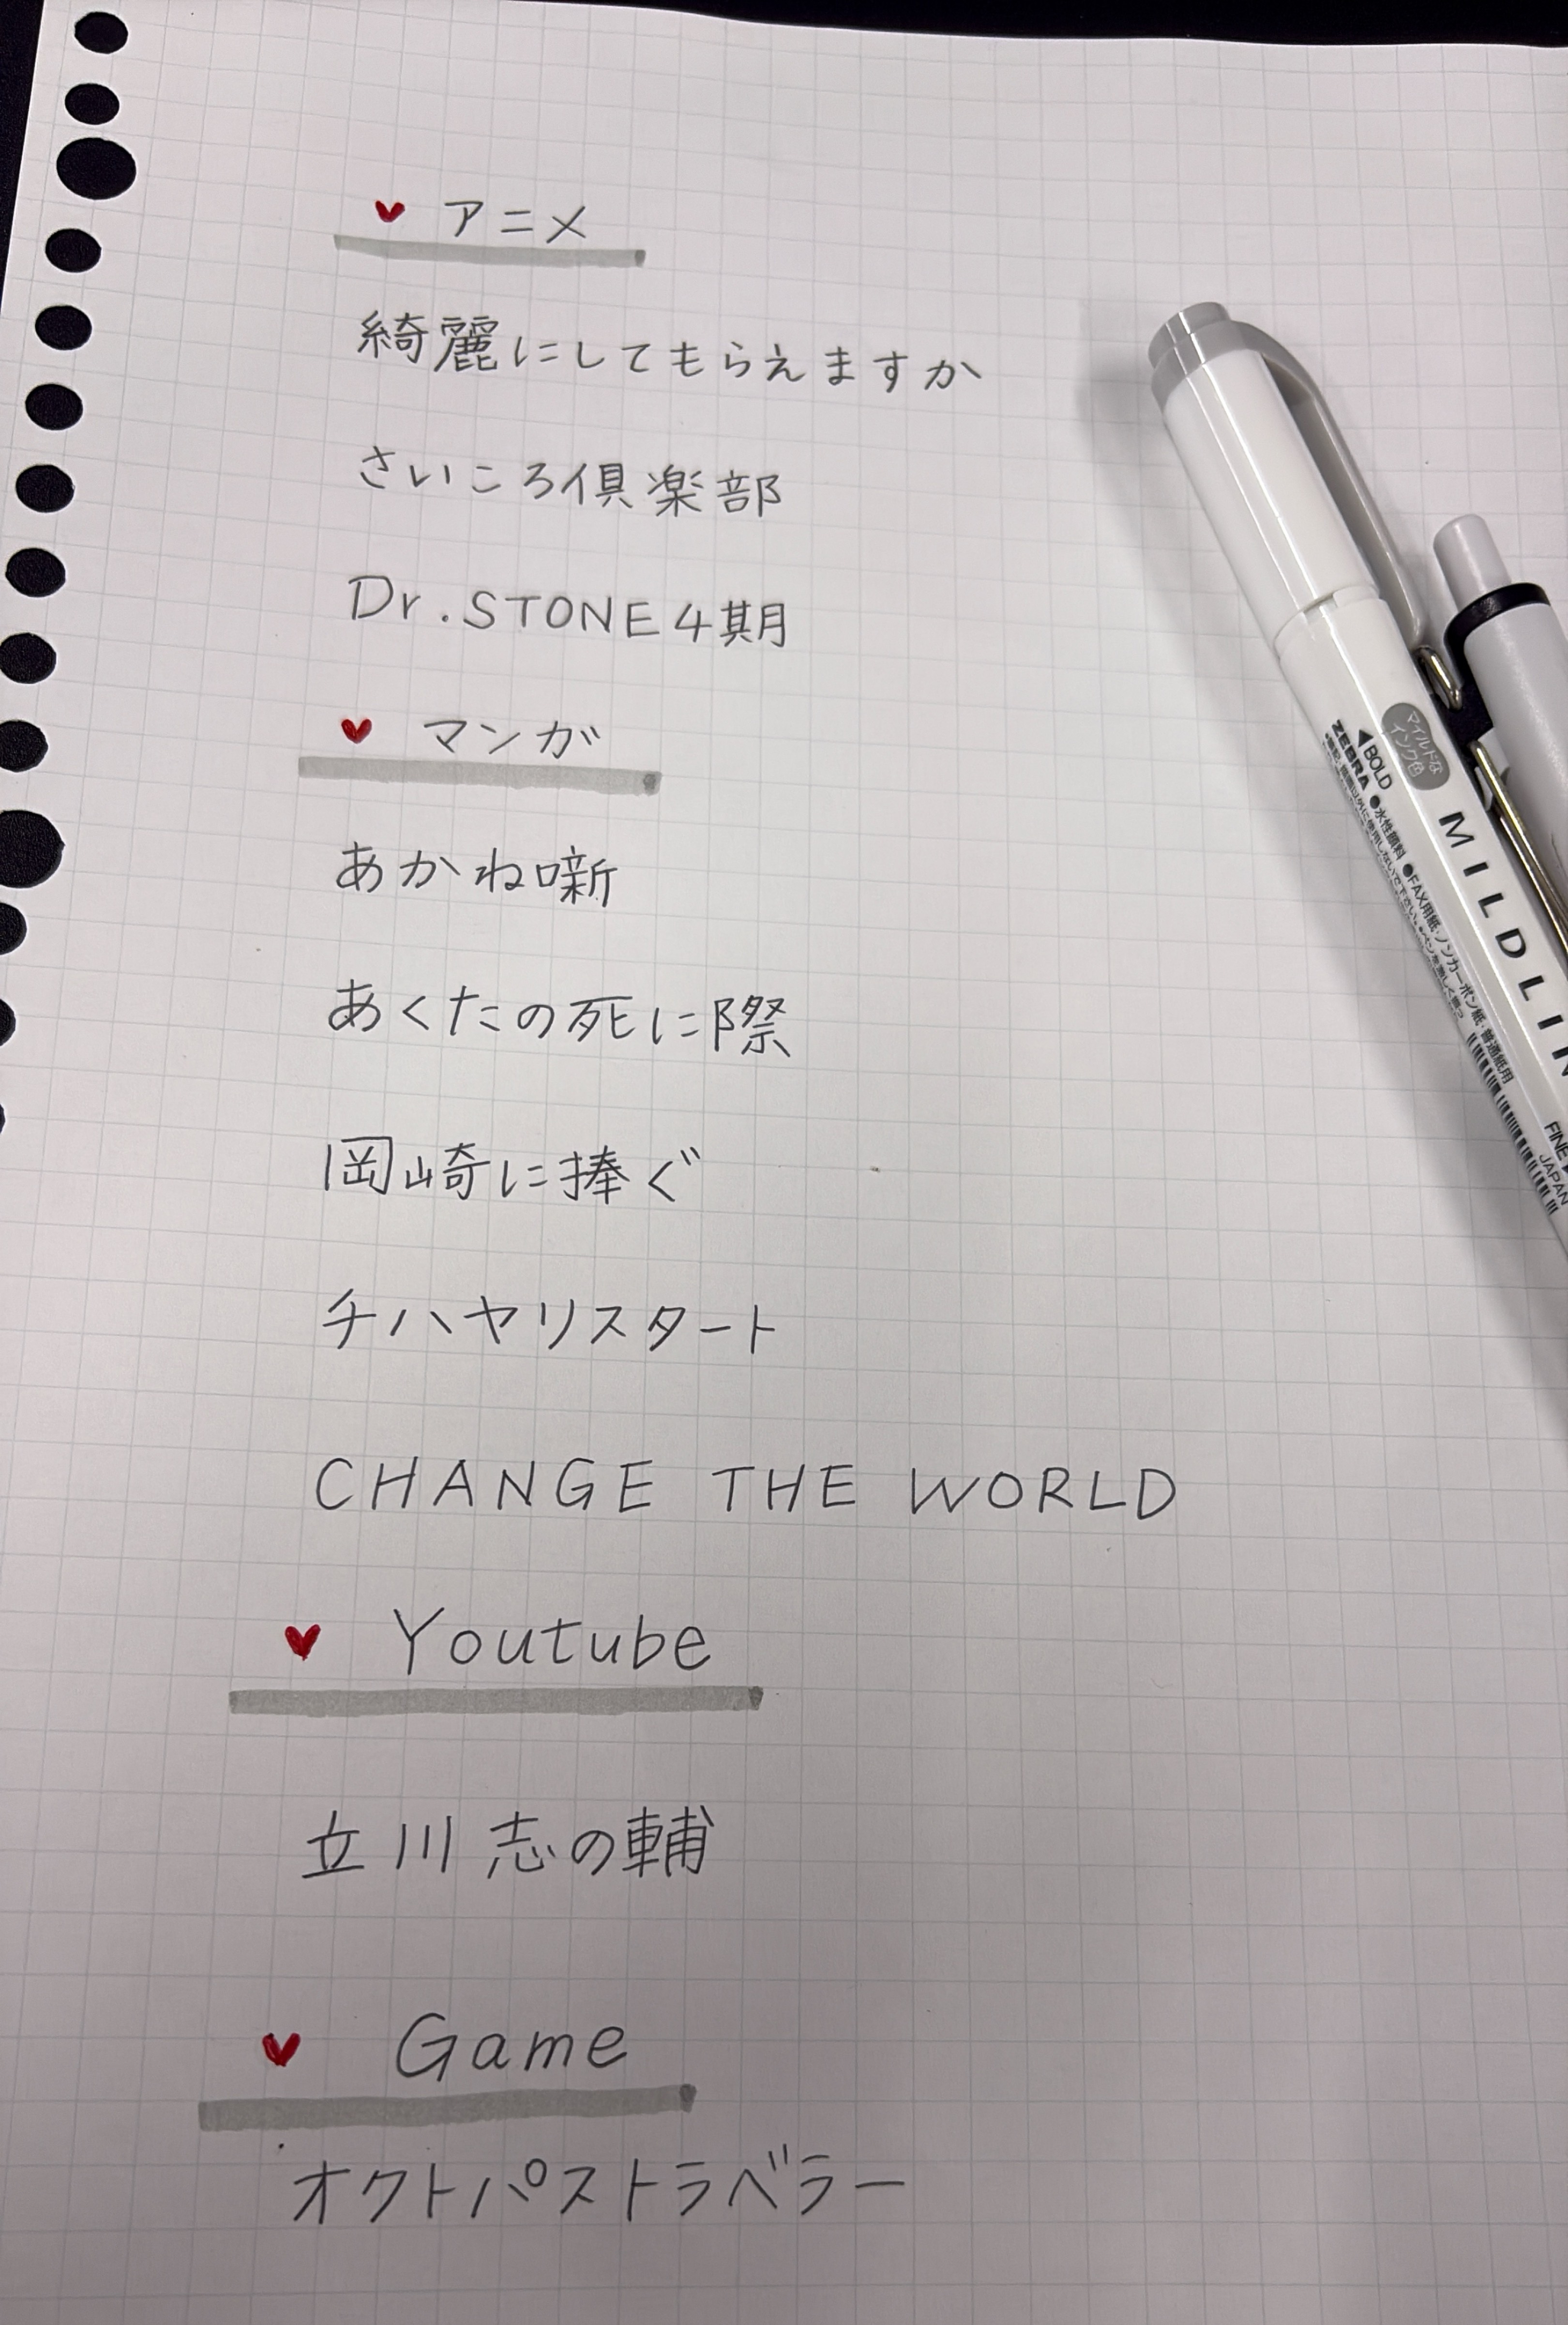 ♥ アニメ
綺麗にしてもらえますか
さいころ倶楽部
Dr.STONE4期
♥ マンガ
あかね噺
あくたの死に際
岡崎に捧ぐ
チハヤリスタート
CHANGE THE WORLD
♥ Youtube
立川志の輔
♥ Game
オクトパストラベラー
マイルドな
インク色
◀BOLD
ZEBRA
●水性顔料 ●FAX用紙・ノンカーボン紙・普通紙用
MILDLIN
FINE
JAPAN